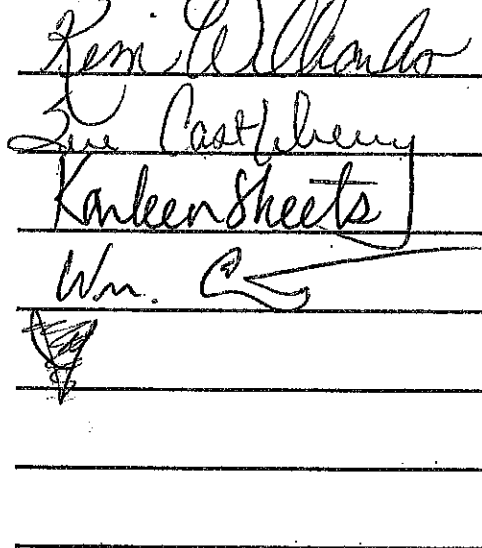 Kim Williamson
Sue Castleberry
Karleen Sheets
Wm. C